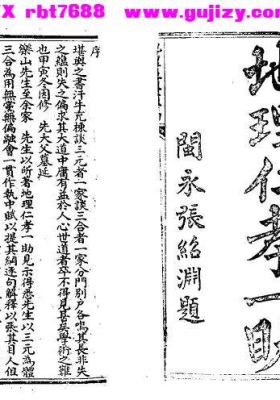 X rbt7688 www.gujizy.com
地理仁孝一助
閩永張紹淵題
序
堪輿之書汗牛充棟談三元者一家談三合者一家分門別戶各鳴其長非失
之蹖則失之偏求其大道中庸有益於人心世道者卒不得見甚矣學術之難
也甲寅冬因修先大父墓延
樂山先生至余家先生以所著地理仁孝一助見示得悉先生以三元為體
三合為用無黨無偏融會一貫作執中賦以提其綱逐句解釋以張其目人但